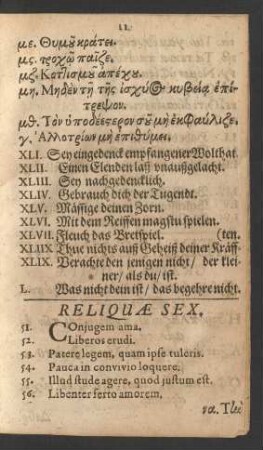 11.
με. Θυμοῦ κράτει.
μς. τροχῷ παῖζε.
μζ. Κοττισμοῦ ἀπέχου.
μη. Μηδὲν τῇ τῆς ἰσχύος κυβείᾳ ἐπίτρεψον.
μθ. Τὸν ὑποδεέστερον σοῦ μὴ ἐκφαύλιζε.
ν. Ἀλλοτρίων μὴ ἐπιθύμει.
XLI. Sey eingedenck empfangener Wolthat.
XLII. Einen Elenden laß vnaußgelacht.
XLIII. Sey nachgedencklich.
XLIV. Gebrauch dich der Tugendt.
XLV. Mässige deinen Zorn.
XLVI. Mit dem Reiffen magstu spielen.
XLVII. Fleuch das Bretspiel. (ten.
XLIIX Thue nichts auß Geheiß deiner Kräff-
XLIX. Verachte den jenigen nicht / der klei-
ner / als du / ist.
L. Was nicht dein ist / das begehre nicht.
RELIQUÆ SEX.
51. Conjugem ama.
52. Liberos erudi.
53. Patere legem, quam ipse tuleris.
54. Pauca in convivio loquere.
55. Illud stude agere, quod justum est.
56. Libenter ferto amorem.
να. Τλέε